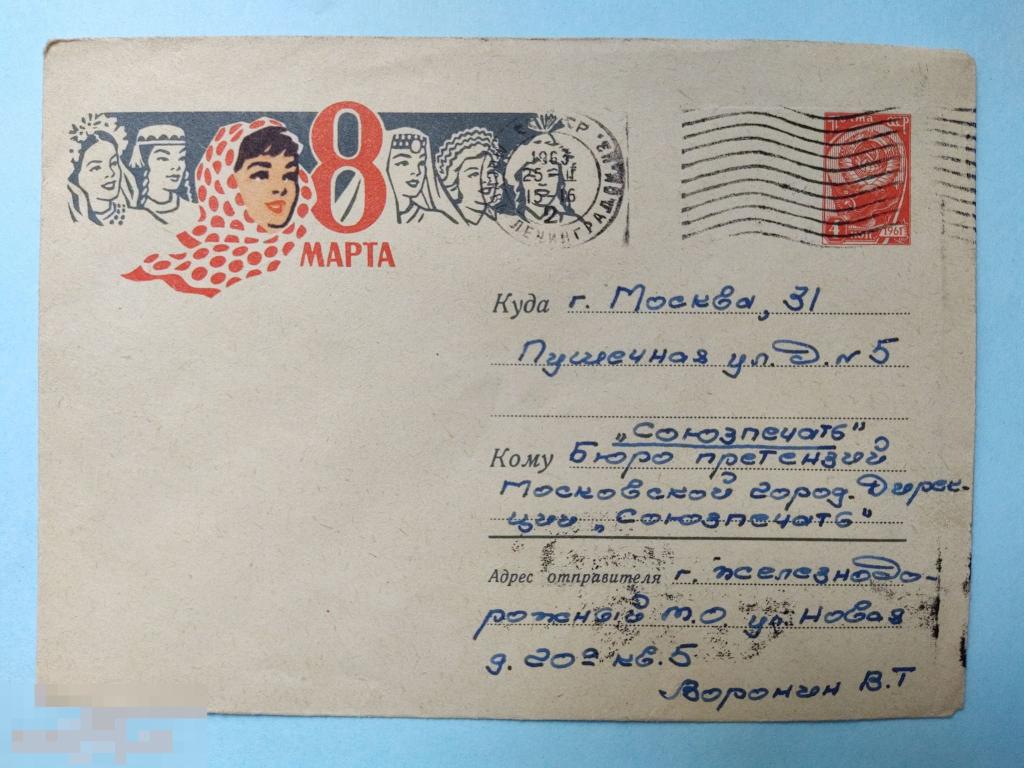 8
МАРТА
1963
25
15-16
2
ЛЕНИНГРАД
Почта СССР
4 КОП 1961
Куда г. Москва, 31
Пушечная ул. Д. № 5
„Союзпечать"
Кому Бюро претензий
Московской город. Дирек-
ции „Союзпечать"
Адрес отправителя г. Железнодо-
рожный М.О. ул. Новая
д. 20а кв. 5
Воронин В.Т